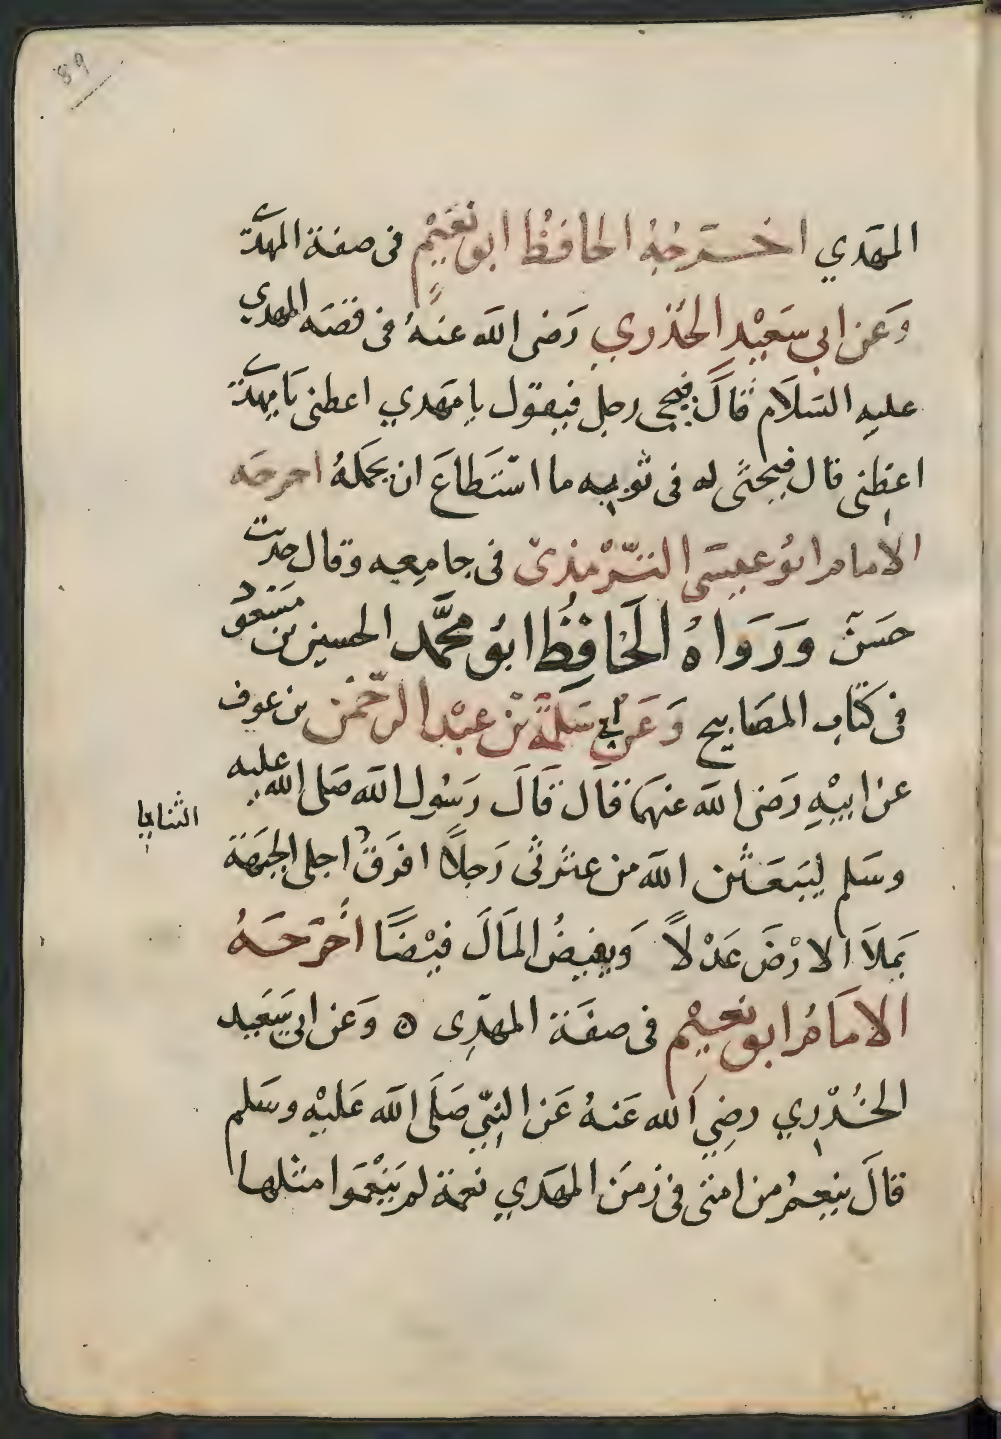 89
المهَدي اخـرجهُ الحافظ ابو نعَيْم فى صفة المهدى
وَعَن ابى سَعيْد الخُذري رَضى الله عنهُ فى قصَه المهدي
عليه السَلَام قَالَ فيجى رجل فيقول يا مهَدي اعطنى يَا مهدى
اعطنى قال فيجثى له فى ثوبه ما استَطاعَ ان يحملهُ اخرجَه
الامام ابوُ عيسَى التّرْمذىّ فى جامِعِه وقال حديث
حسَن وَرَوَاهُ الحَافِظُ ابوُ محمَّد الحسين بن مَسْعود
فى كتاب المصَابيح وَعَنْ ابى سَلمَة بْن عَبْد الرحّمٰن بن عوف
عن ابيْهِ رَضى الله عنهمَا قَال قَالَ رَسُول الله صَلى الله عليه
وسَلم ليَبعَثن الله من عترتى رَجلاً افرَقُ اجلى الجبهَة
الثنايا
يَملأ الارْضَ عَدْلاً وَيفيضُ المَالَ فيْضًا أخْرَجَهُ
الامَامُ ابو نعيْم فى صفَة المهدِى ٥ وَعَن ابى سَعَيد
الخُدْري رضِي الله عَنهُ عَن النبىّ صَلَى الله عَليْه وسَلم
قالَ ينعمُ من امتى فى زمَن المهَدي نعمة لم يَنْعَموا مثلها